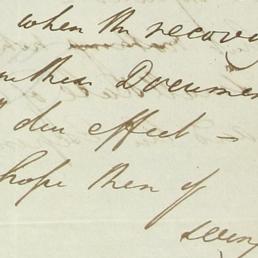 when the recov
then Documen
due effect –
hope then if